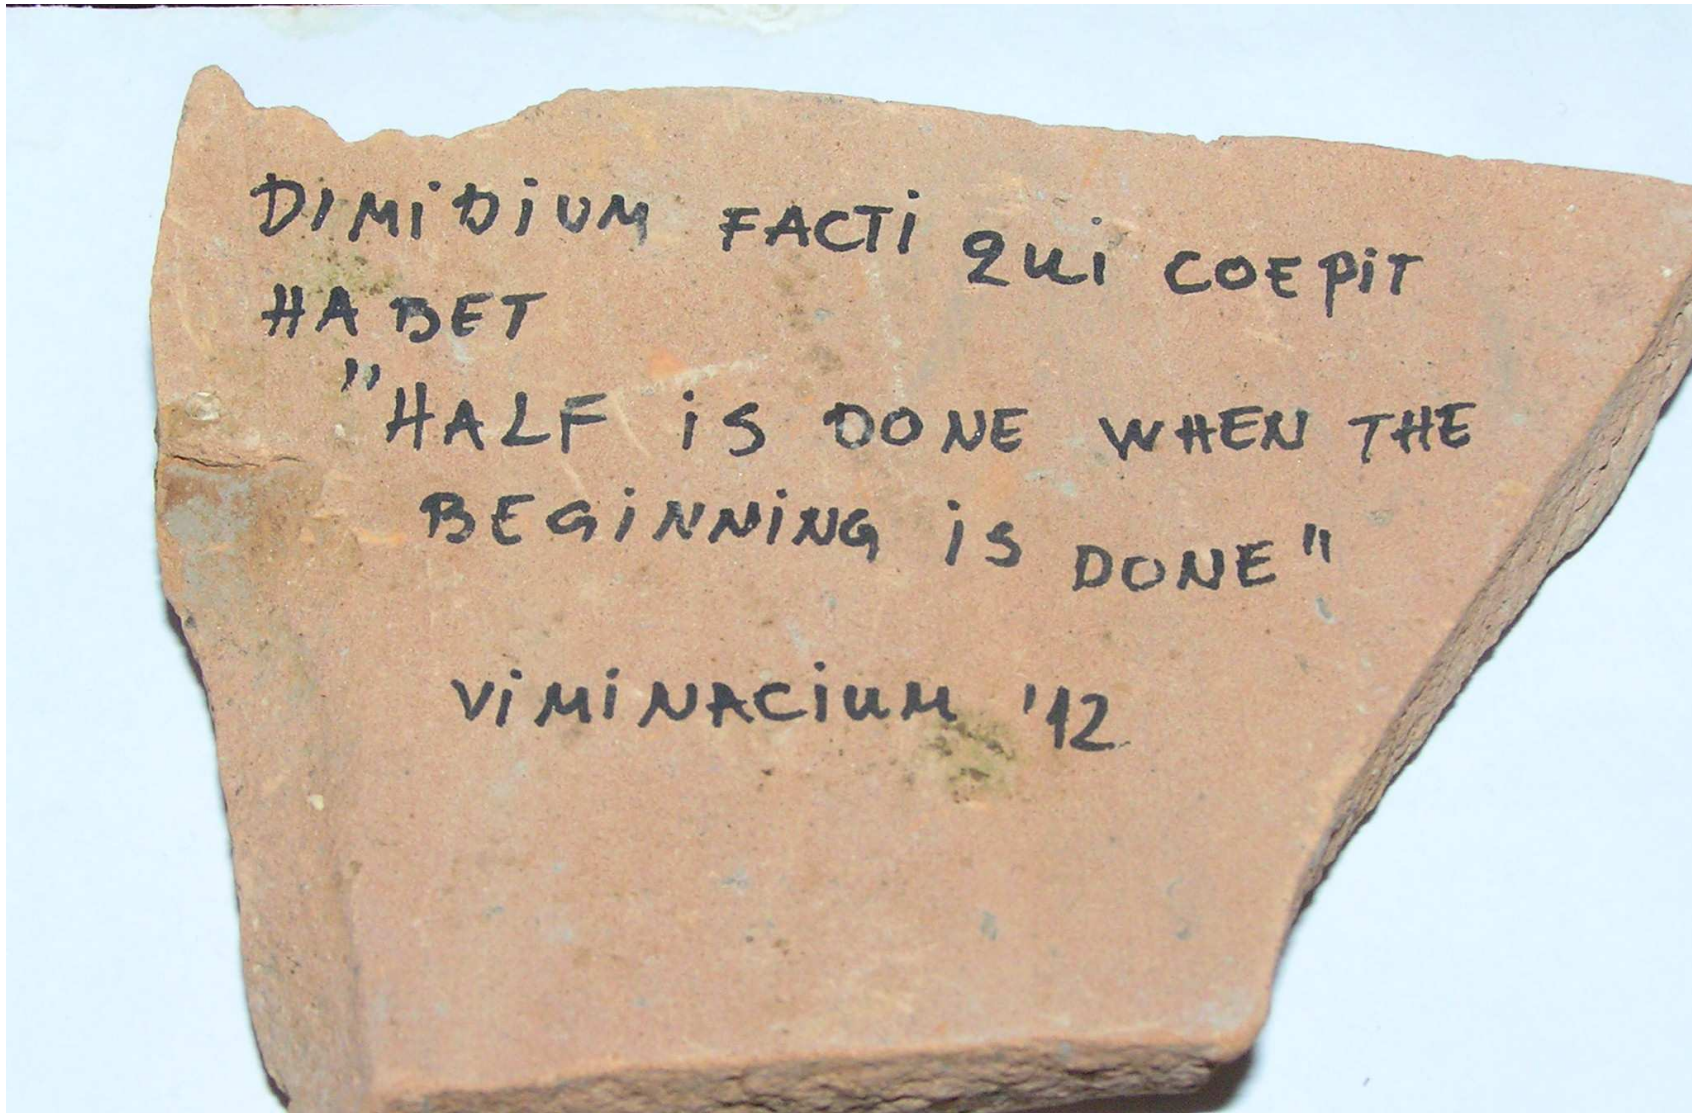 DIMIDIUM FACTI QUI COEPIT
HABET
"HALF IS DONE WHEN THE
BEGINNING IS DONE"
VIMINACIUM '12